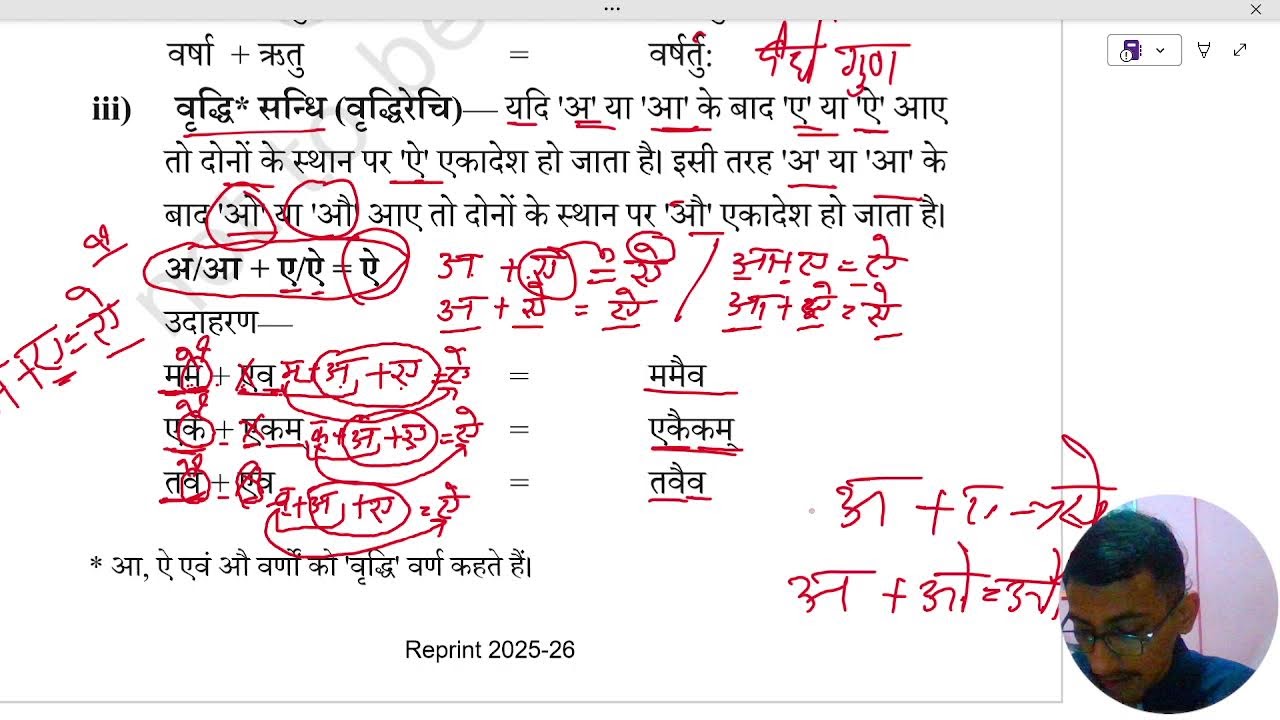 वर्षा + ऋतु = वर्षर्तुः गुण
iii) वृद्धि* सन्धि (वृद्धिरेचि)— यदि 'अ' या 'आ' के बाद 'ए' या 'ऐ' आए
तो दोनों के स्थान पर 'ऐ' एकादेश हो जाता है। इसी तरह 'अ' या 'आ' के
बाद 'ओ' या 'औ' आए तो दोनों के स्थान पर 'औ' एकादेश हो जाता है।
अ/आ + ए/ऐ = ऐ अ + ए = ऐ / आ + ए = ऐ
अ + ऐ = ऐ / आ + ऐ = ऐ
उदाहरण—
अ + ए = ऐ
मम + एव म + अ + ए = ऐ = ममैव
एक + एकम् क + अ + ए = ऐ = एकैकम्
तव + एव व + अ + ए = ऐ = तवैव
अ + ए → ऐ
* आ, ऐ एवं औ वर्णों को 'वृद्धि' वर्ण कहते हैं।
अ + ओ = औ
Reprint 2025-26